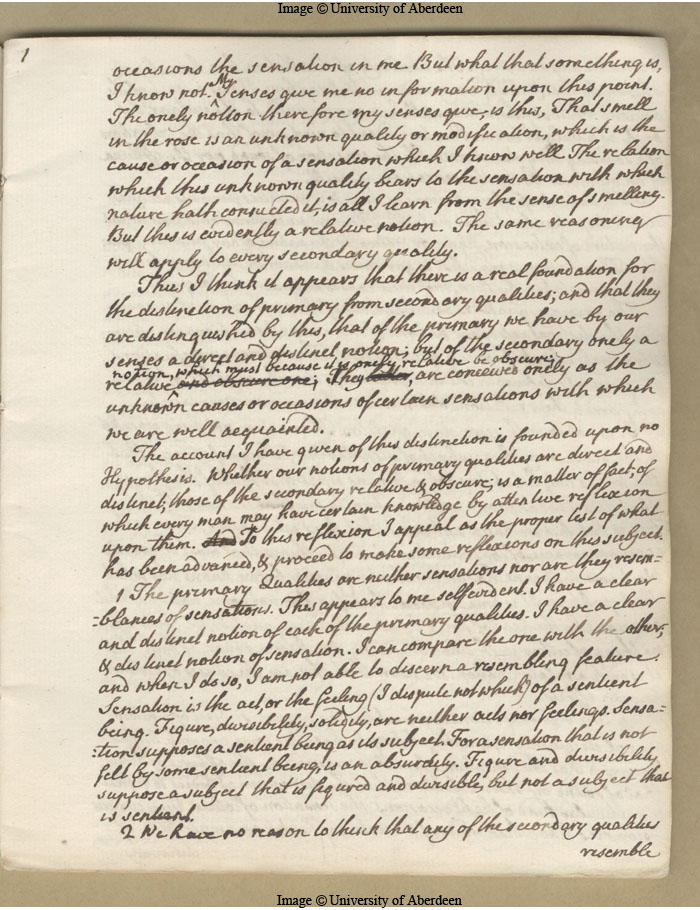 Image © University of Aberdeen
1
occasions the sensation in me But what that something is,
I know not. My Senses give me no information upon this point.
The onely notion therefore my senses give, is this, That smell
in the rose is an unknown quality or modification, which is the
cause or occasion of a sensation which I know well The relation
which this unknown quality bears to the sensation with which
nature hath connected it, is all I learn from the sense of smelling.
But this is evidently a relative notion. The same reasoning
will apply to every secondary quality.
Thus I think it appears that there is a real foundation for
the distinction of primary from secondary qualities; and that they
are distinguished by this, that of the primary we have by our
senses a direct and distinct notion; but of the secondary onely a
notion, which must because it is onely relative be obscure;
relative and obscure one; They are conceived onely as the
unknown causes or occasions of certain sensations with which
we are well acquainted.
The account I have given of this distinction is founded upon no
Hypothesis. Whether our notions of primary qualities are direct and
distinct; those of the secondary relative & obscure; is a matter of fact; of
which every man may have certain knowledge by attentive reflexion
upon them. And To this reflexion I appeal as the proper test of what
has been advanced, & proceed to make some reflexions on this subject.
1 The primary Qualities are neither sensations nor are they resem=
=blances of sensations. This appears to me selfevident. I have a clear
and distinct notion of each of the primary qualities. I have a clear
& distinct notion of sensation. I can compare the one with the other;
and when I do so, I am not able to discern a resembling feature.
Sensation is the act, or the feeling (I dispute not which) of a sentient
being. Figure, divisibility, solidity, are neither acts nor feelings. Sensa=
=tion supposes a sentient being as its subject. For a sensation that is not
felt by some sentient being, is an absurdity. Figure and divisibility
suppose a subject that is figured and divisible, but not a subject that
is sentient.
2 We have no reason to think that any of the secondary qualities
resemble
Image © University of Aberdeen